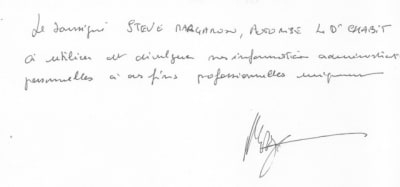 Le soussigné STEVE MARGARON, AUTORISE Le Dr CHABIT
à utiliser et divulguer ses informations administrat
personnelles à des fins professionnelles uniquement